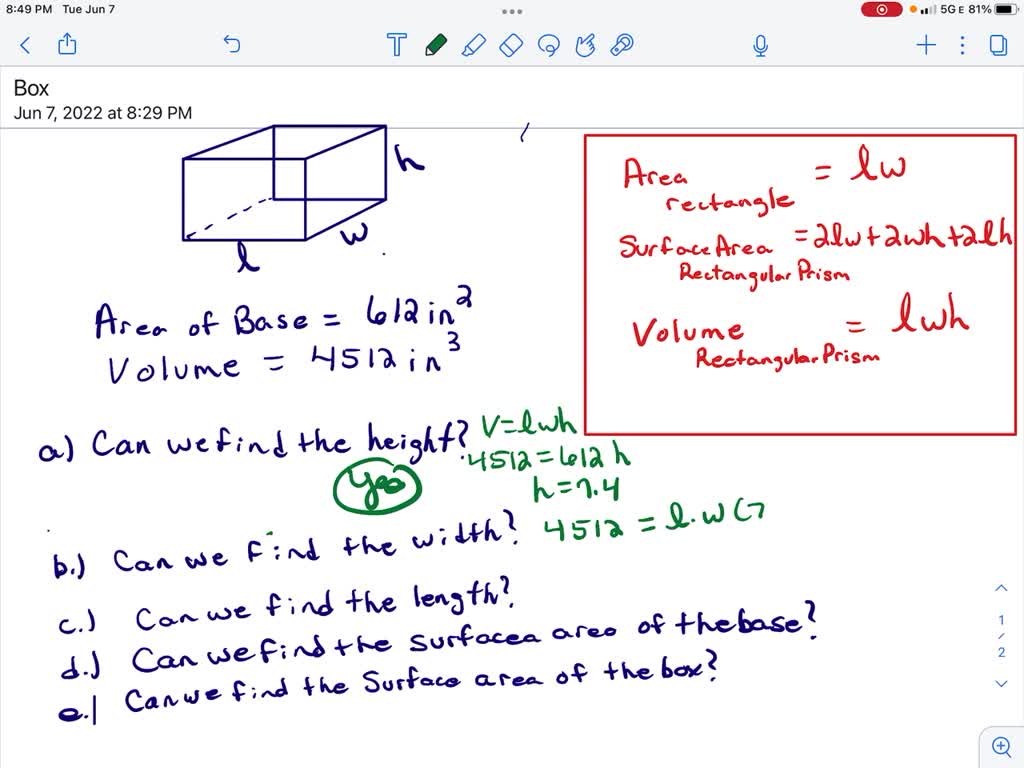 8:49 PM Tue Jun 7
5G E 81%
T
Box
Jun 7, 2022 at 8:29 PM
h
w
l
Area of Base = 612 in²
Volume = 4512 in³
Area rectangle = lw
Surface Area Rectangular Prism = 2lw + 2wh + 2lh
Volume Rectangular Prism = lwh
a.) Can we find the height? V = lwh
4512 = 612 h
Yes
h = 7.4
b.) Can we find the width? 4512 = l·w (7
c.) Can we find the length?
d.) Can we find the surfacea area of the base?
e.) Can we find the Surface area of the box?
1
/
2